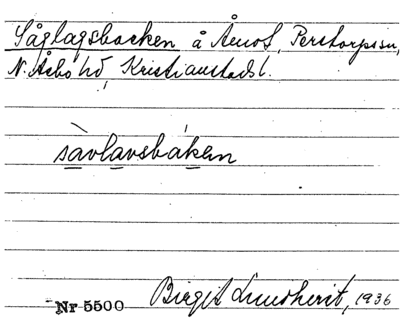 Såglagsbacken å Åmot, Perstorps sn,
N. Åsbo hd, Kristianstads l.
sàvlavsbáken
Nr 5500 Birgit Lundkvist, 1936